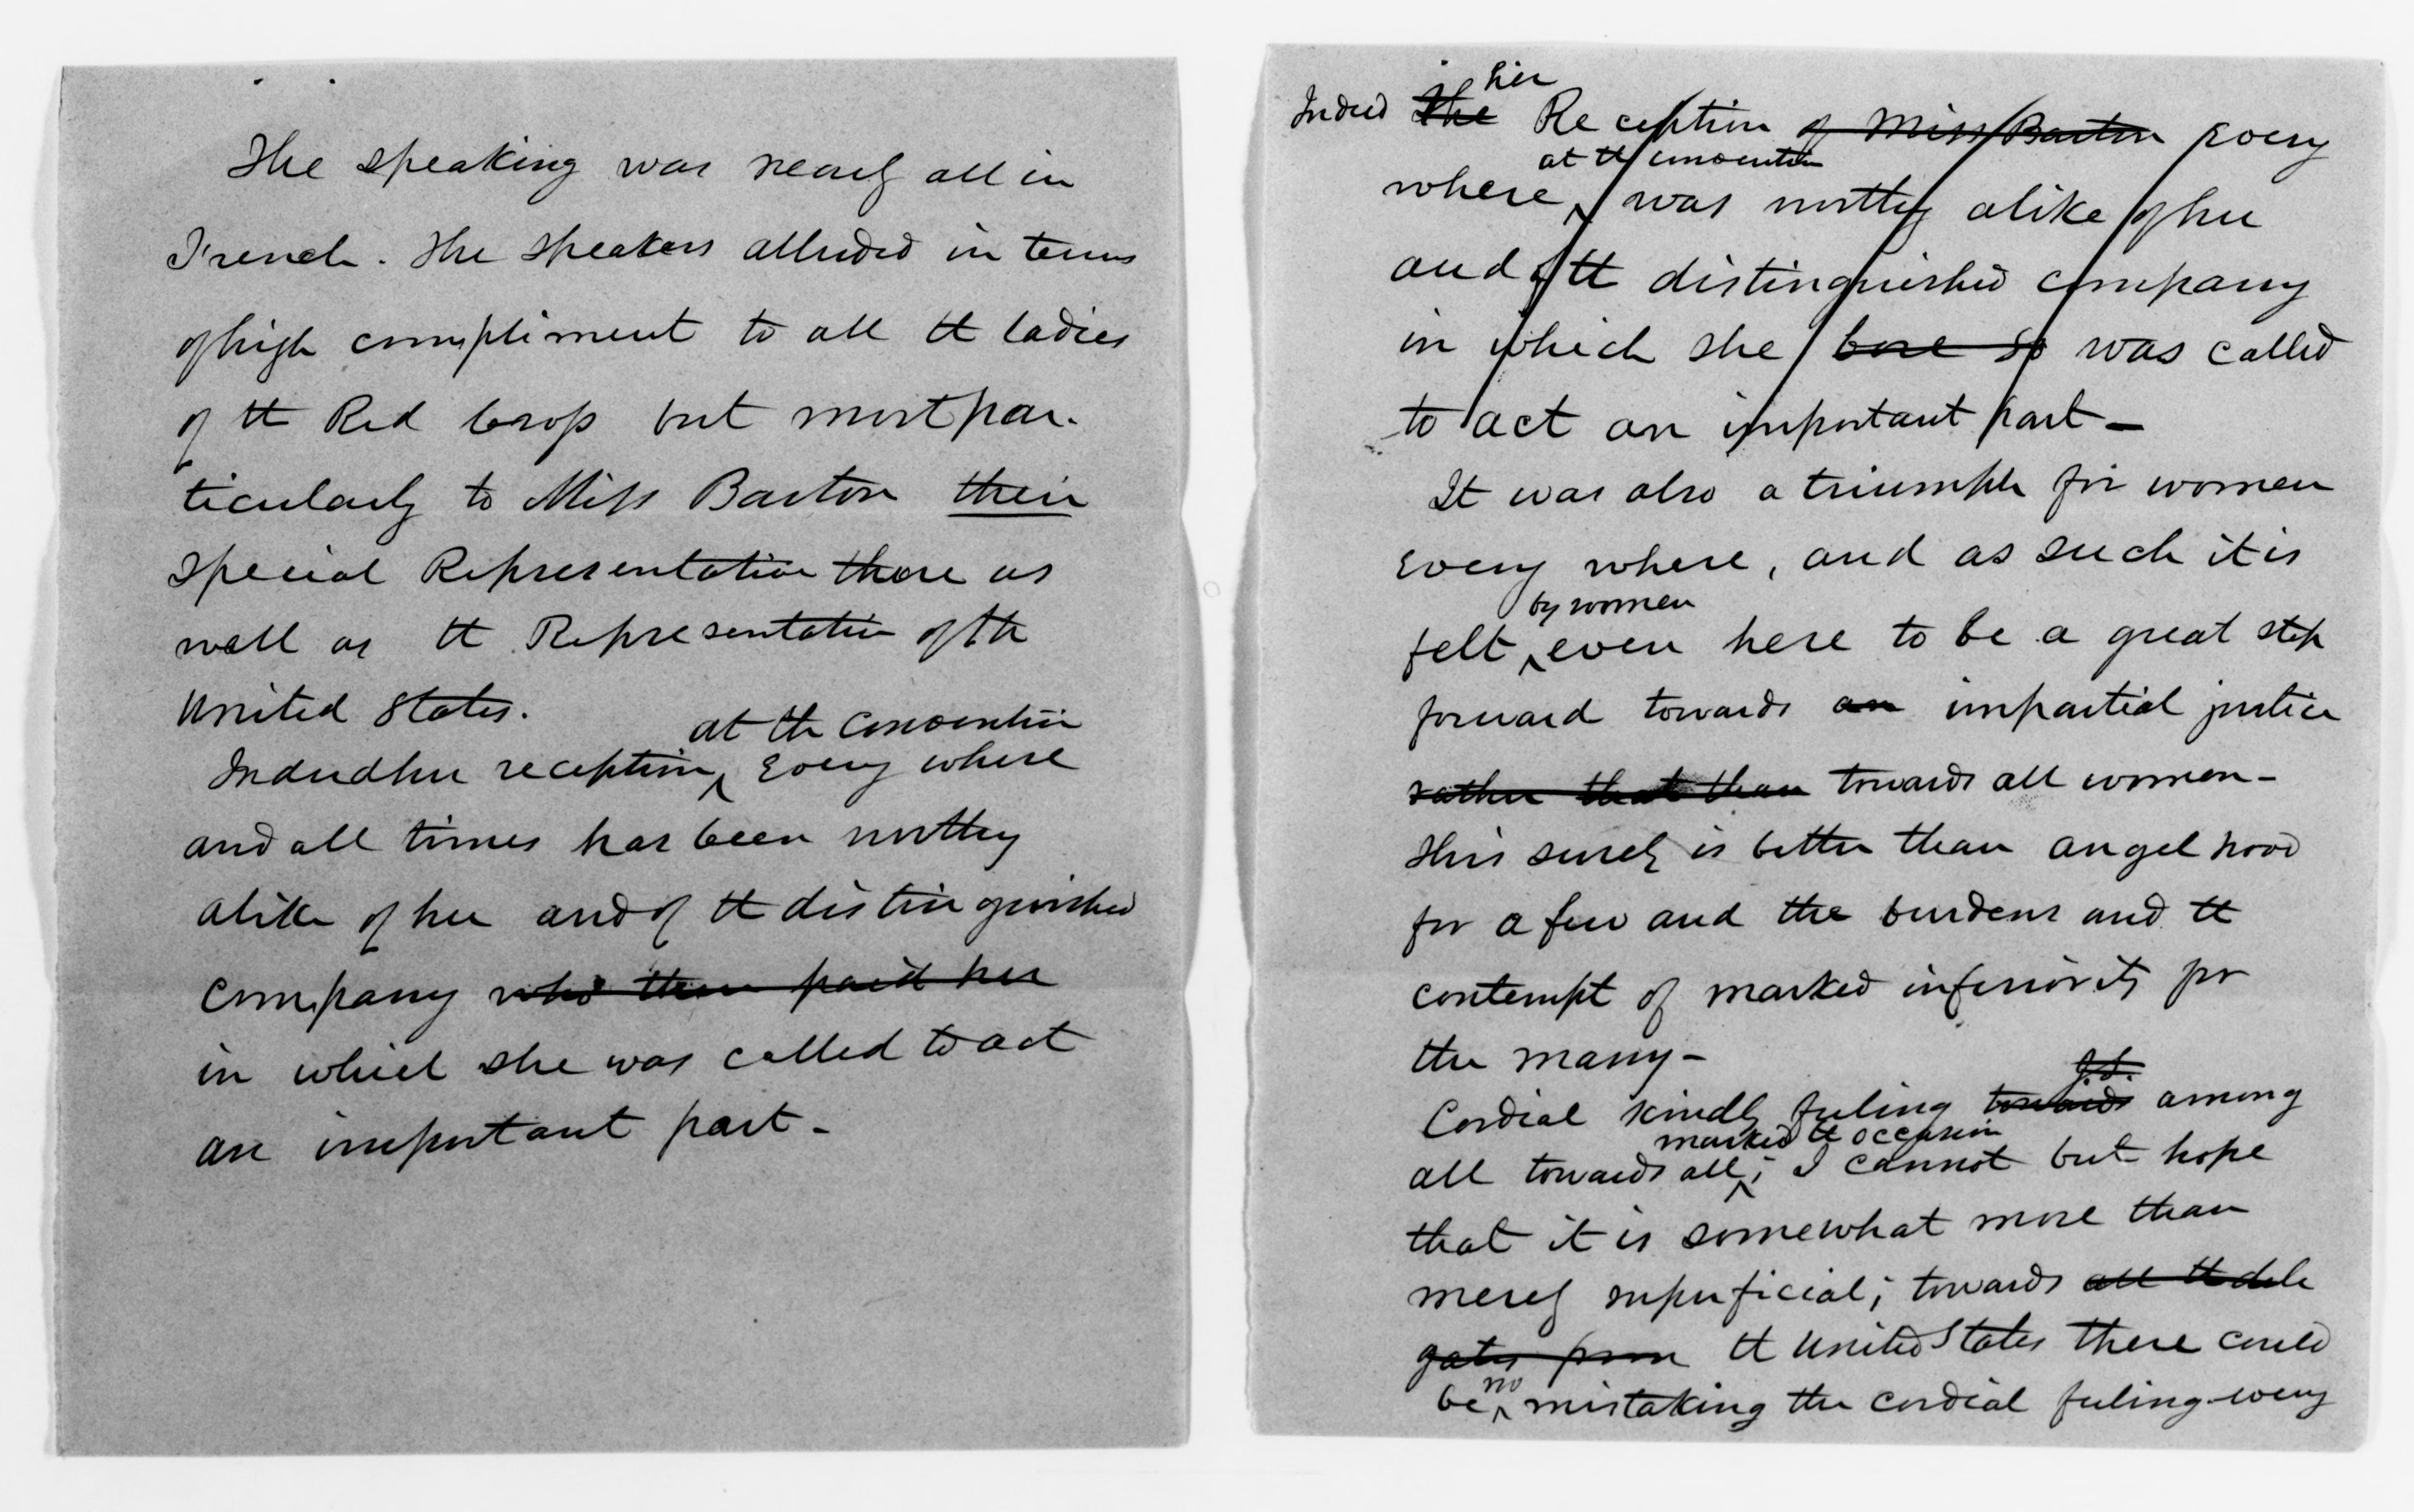 The speaking was nearly all in
French. The speakers alluded in terms
of high compliment to all the ladies
of the Red Cross but most par-
ticularly to Miss Barton their
special Representative there as
well as the Representative of the
United States.
at the convention
Indeed her reception every where
and all times has been worthy
alike of her and of the distinguished
company who then paid her
in which she was called to act
an important part -
her
Indeed The Reception of Miss Barton every
at the convention
where was worthy alike of her
and of the distinguished company
in which she bore so was called
to act an important part -
It was also a triumph for women
every where, and as such it is
by women
felt even here to be a great step
forward towards an impartial justice
rather that than towards all women -
This surely is better than angel hood
for a few and the burdens and the
contempt of marked inferiority for
the many -
Cordial kindly feeling towards among
marked the occasion
all towards all; I cannot but hope
that it is somewhat more than
merely superficial; towards all the dele
gates from the United States there could
no
be mistaking the cordial feeling every